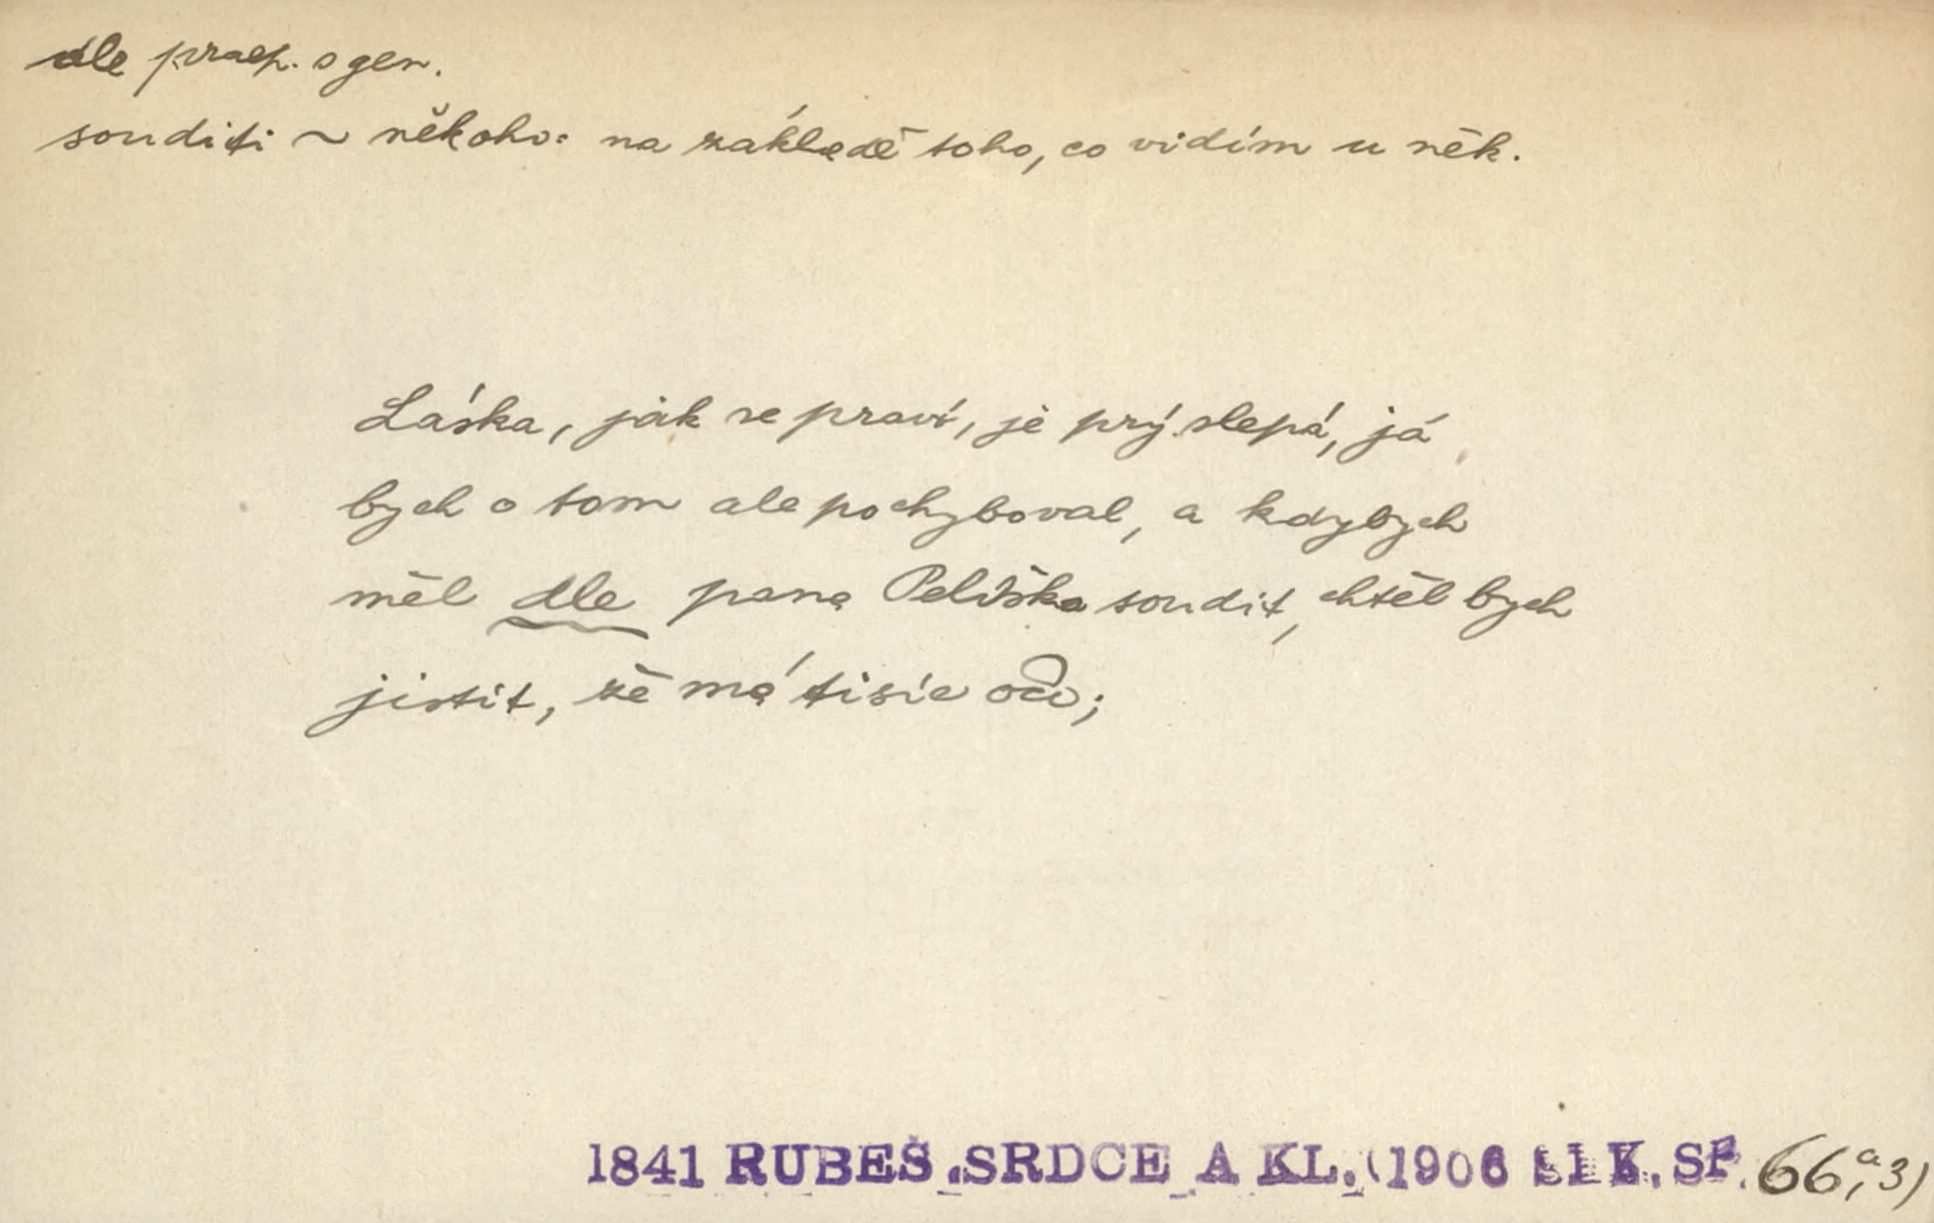 dle praep. s gen.
souditi ~ někoho: na základě toho, co vidím u něk.
Láska, jak se praví, je prý slepá, já
bych o tom ale pochyboval, a kdybych
měl dle pana Peliška soudit, chtěl bych
jistit, že má tisíc očí;
1841 RUBEŠ, SRDCE A KL. (1906 K. SP. 66, a, 3)